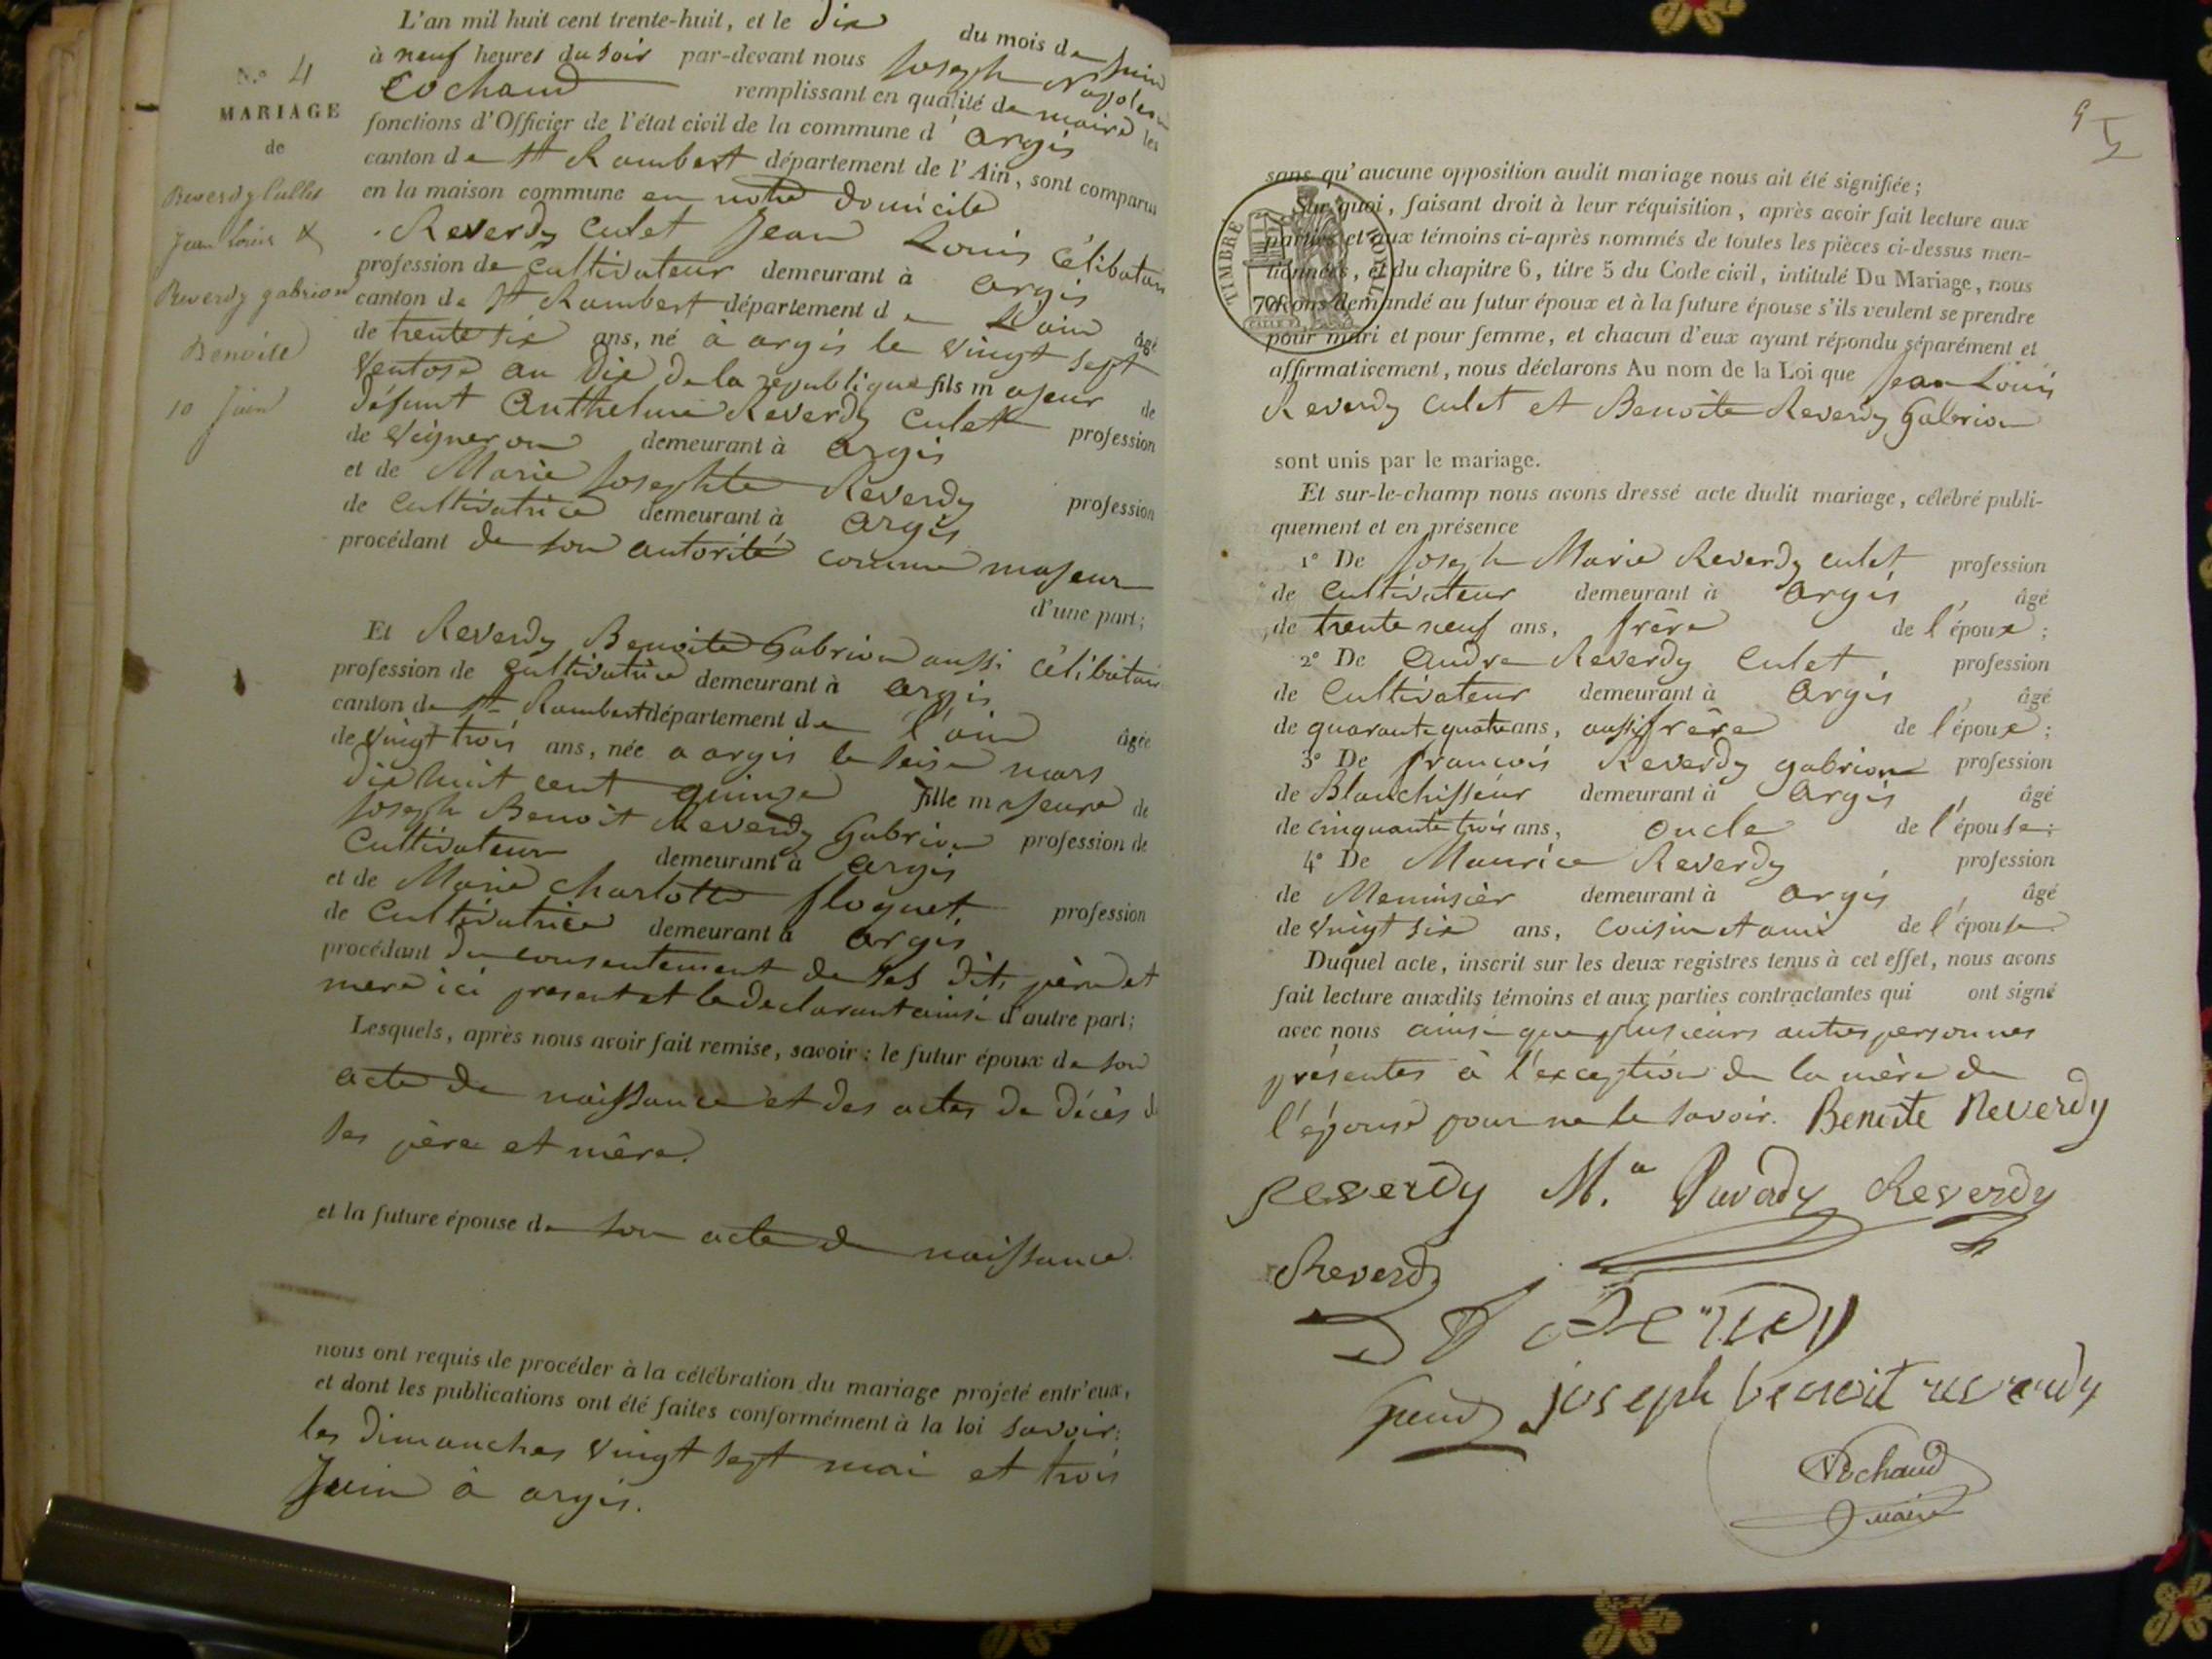 N.º 4
MARIAGE
de
Reverdy Cullet
Jean Louis &
Reverdy gabrion
Benoite
10 Juin
L'an mil huit cent trente-huit, et le dix du mois de Juin
à neuf heures du soir par-devant nous Joseph Napoleon
Cochaud remplissant en qualité de maire les
fonctions d'Officier de l'état civil de la commune d'argis
canton de St Rambert département de l'Ain, sont comparus
en la maison commune en notre domicile
Reverdy Culet Jean Louis Célibataire
profession de Cultivateur demeurant à argis
canton de St Rambert département de Lain âgé
de trente six ans, né à argis le vingt sept
Ventose an dix de la republique fils majeur de
défunt Anthelme Reverdy Culet profession
de Veigneron demeurant à argis
et de Marie Josephte Reverdy profession
de Cultivatrice demeurant à argis
procédant de son autorité comme majeur
d'une part;
Et Reverdy Benoite Gabrion aussi célibataire
profession de Cultivatrice demeurant à argis
canton de St Rambert département de l'ain âgée
de vingt trois ans, née a argis le seise mars
dix huit cent quinze fille majeure de
Joseph Benoit Reverdy Gabrion profession de
Cultivateur demeurant à argis
et de Marie Charlotte floquet, profession
de Cultivatrice demeurant à argis
procédant du consentement de ses dits père et
mere ici present et le declarant ainsi d'autre part;
Lesquels, après nous avoir fait remise, savoir: le futur époux de son
acte de naissance et des actes de décès de
ses père et mère.
et la future épouse de son acte de naissance.
nous ont requis de procéder à la célébration du mariage projeté entr'eux,
et dont les publications ont été faites conformément à la loi savoir:
les dimanches vingt sept mai et trois
Juin à argis.
sans qu'aucune opposition audit mariage nous ait été signifiée;
Sur quoi, faisant droit à leur réquisition, après avoir fait lecture aux
parties et aux témoins ci-après nommés de toutes les pièces ci-dessus men-
tionnées, et du chapitre 6, titre 5 du Code civil, intitulé Du Mariage, nous
avons demandé au futur époux et à la future épouse s'ils veulent se prendre
pour mari et pour femme, et chacun d'eux ayant répondu séparément et
affirmativement, nous déclarons Au nom de la Loi que Jean Louis
Reverdy Culet et Benoite Reverdy Gabrion
sont unis par le mariage.
Et sur-le-champ nous avons dressé acte dudit mariage, célébré publi-
quement et en présence
1º De Joseph Marie Reverdy culet profession
de Cultivateur demeurant à argis, âgé
de trente neuf ans, frère de l'époux;
2º De Andre Reverdy Culet, profession
de Cultivateur demeurant à Argis, âgé
de quarante quatre ans, aussi frère de l'époux;
3º De francois Reverdy gabrion profession
de Blanchisseur demeurant à Argis, âgé
de cinquante trois ans, oncle de l'épouse;
4º De Maurice Reverdy profession
de Menuisier demeurant à argis, âgé
de vingt six ans, cousin et ami de l'épouse.
Duquel acte, inscrit sur les deux registres tenus à cet effet, nous avons
fait lecture auxdits témoins et aux parties contractantes qui ont signé
avec nous ainsi que plusieurs autres personnes
présentes à l'exception de la mère de
l'épouse pour ne le savoir. Benoite Reverdy
Reverdy M.ce Reverdy Reverdy
Reverdy
joseph benoit reverdy
Cochaud
maire
TIMBRE ROYAL